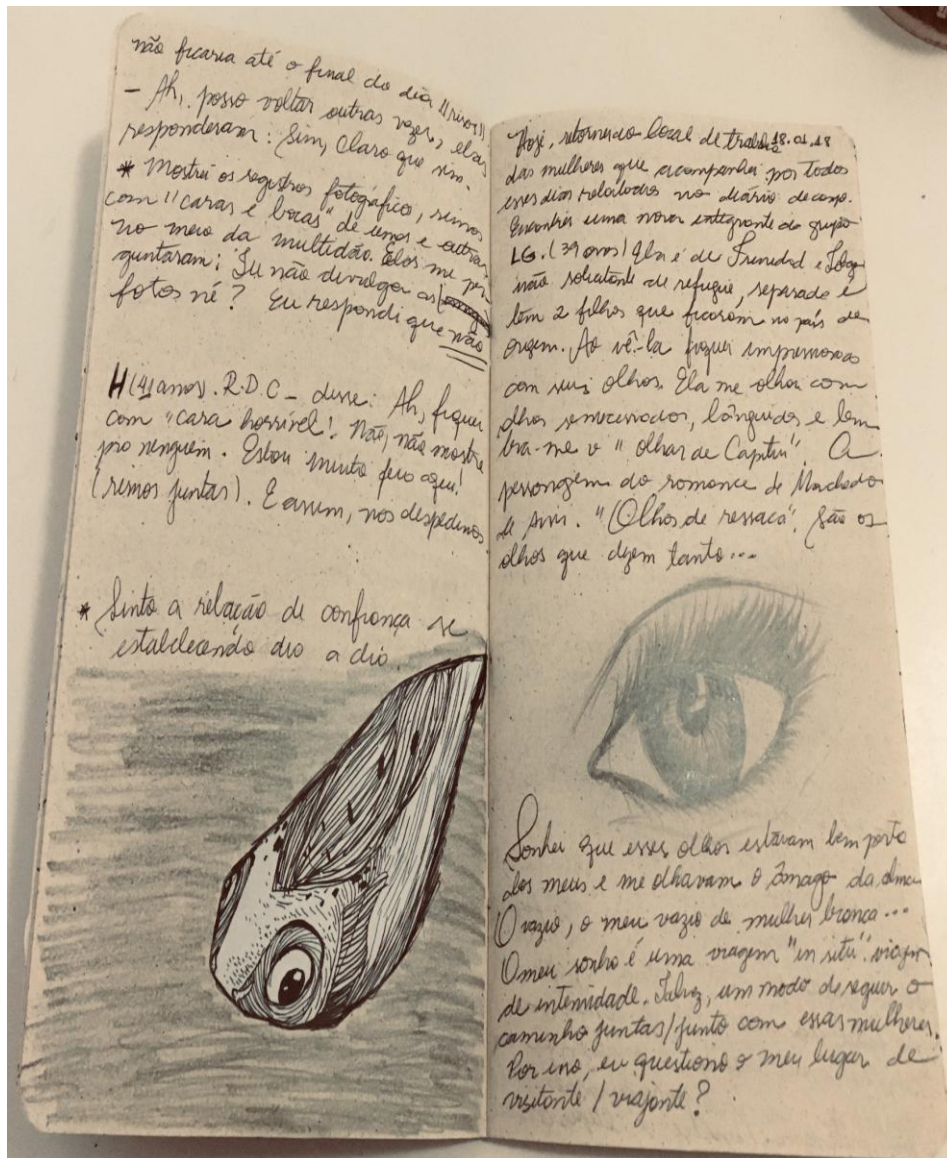 não ficaria até o final do dia "risos".
- Ah, posso voltar outras vezes, elas
responderam: Sim, claro que sim.
* Mostrei os registros fotográfico, rimos
com "caras e bocas" de umas e outras
no meio da multidão. Elas me per-
guntaram: Tu não divulga as
fotos né? Eu respondi que não
H (41 anos). R.D.C - disse: Ah, fiquei
com "cara horrível! Não, não mostre
pro ninguém. Estou muito feia aqui!
(rimos juntas). E assim, nos despedimos
* Sinto a relação de confiança se
estabelecendo dia a dia.
18.01.18
Hoje, retornei ao local de trabalho
das mulheres que acompanhei por todos
esses dias relatados no diário de campo.
Encontrei uma nova integrante do grupo
LG. (39 anos) Ela é de Trinidad e Tobago
não solicitante de refúgio, separada e
tem 2 filhos que ficaram no país de
origem. Ao vê-la fiquei impressionada
com seus olhos. Ela me olhou com
olhos semicerrados, lânguidos e lem
bra-me o "olhar de Capitu". A
personagem do romance de Machado
de Assis. "(Olhos de ressaca". São os
olhos que dizem tanto...
Sonhei que esses olhos estavam bem perto
dos meus e me olhavam o âmago da alma
O vazio, o meu vazio de mulher branca...
O meu sonho é uma viagem "in situ", viagem
de intensidade. Talvez, um modo de seguir o
caminho juntas/junto com essas mulheres.
Por isso, eu questiono o meu lugar de
visitante / viajante?